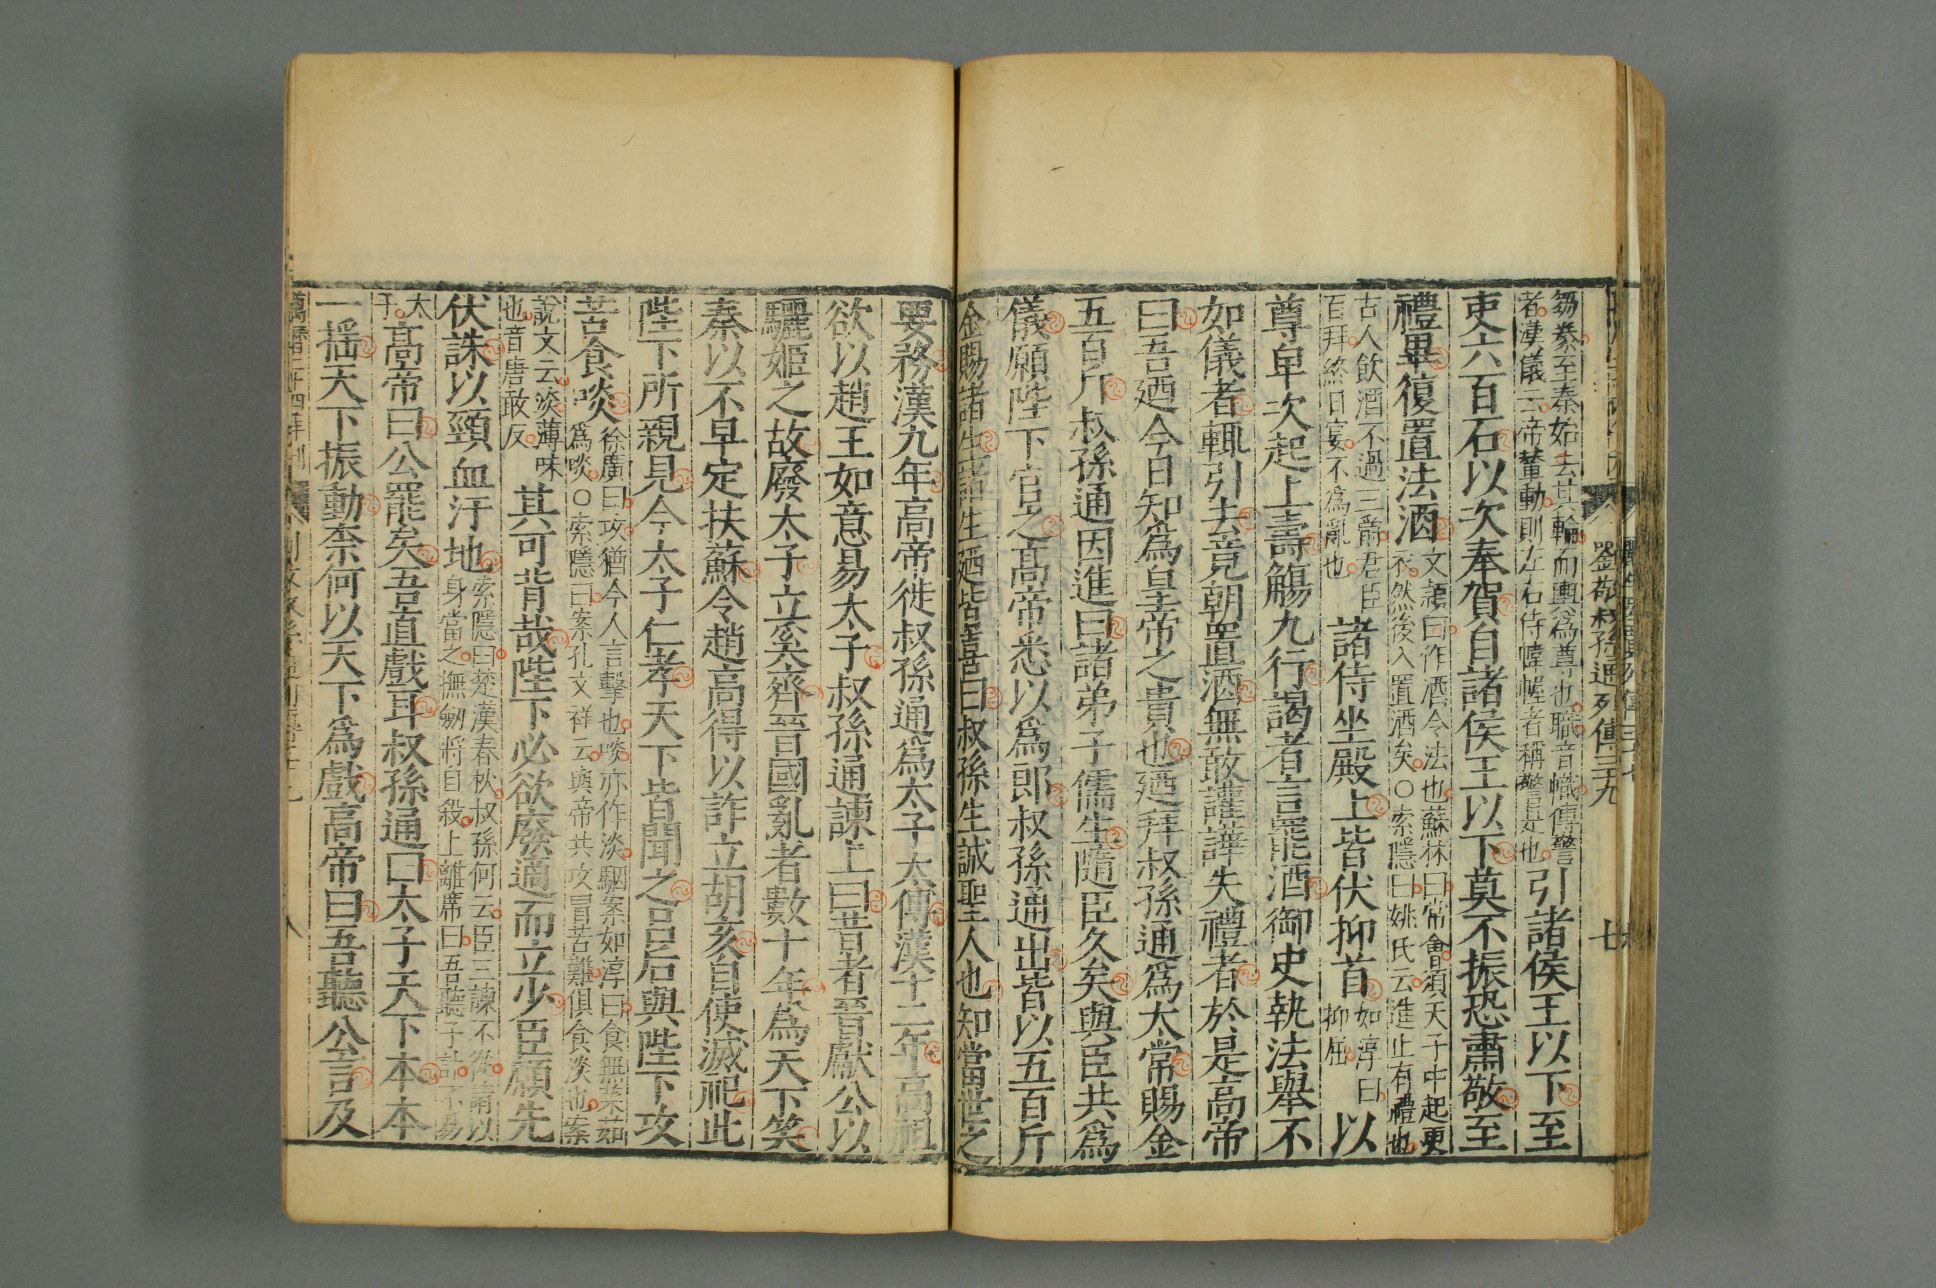 劉敬叔孫通列傳三九
七
芻豢至秦始去其輪而輿爲尊也職音幟傳警
者漢儀云帝輦動則左右侍帷幄者稱警是也
引諸侯王以下至
吏六百石以次奉賀自諸侯王以下莫不振恐肅敬至
禮畢復置法酒
文穎曰作酒令法也蘇林曰常會須天子中起更
衣然後入置酒矣○索隱曰姚氏云進止有禮也
古人飲酒不過三爵君臣
百拜終日宴不爲亂也
諸侍坐殿上皆伏抑首
如淳曰
抑屈
以
尊卑次起上壽觴九行謁者言罷酒御史執法舉不
如儀者輒引去竟朝置酒無敢讙譁失禮者於是高帝
曰吾廼今日知爲皇帝之貴也廼拜叔孫通爲太常賜金
五百斤叔孫通因進曰諸弟子儒生隨臣久矣與臣共爲
儀願陛下官之高帝悉以爲郎叔孫通出皆以五百斤
金賜諸生諸生廼皆喜曰叔孫生誠聖人也知當世之
要務漢九年高帝徙叔孫通爲太子太傅漢十二年高祖
欲以趙王如意易太子叔孫通諫上曰昔者晉獻公以
驪姬之故廢太子立奚齊晉國亂者數十年爲天下笑
秦以不早定扶蘇令趙高得以詐立胡亥自使滅祀此
陛下所親見今太子仁孝天下皆聞之呂后與陛下攻
苦食啖
徐廣曰攻猶今人言擊也啖亦作淡駰案如淳曰食無菜茹
爲啖○索隱曰案孔文祥云與帝共攻冒苦難俱食淡也案
說文云淡薄味
也音唐敢反
其可背哉陛下必欲廢適而立少臣願先
伏誅以頸血汙地
索隱曰楚漢春秋叔孫何云臣三諫不從請以
身當之撫劒將自殺上離席曰吾聽子計不易
太
子
高帝曰公罷矣吾直戲耳叔孫通曰太子天下本本
一搖天下振動奈何以天下爲戲高帝曰吾聽公言及
萬曆二十四年刊